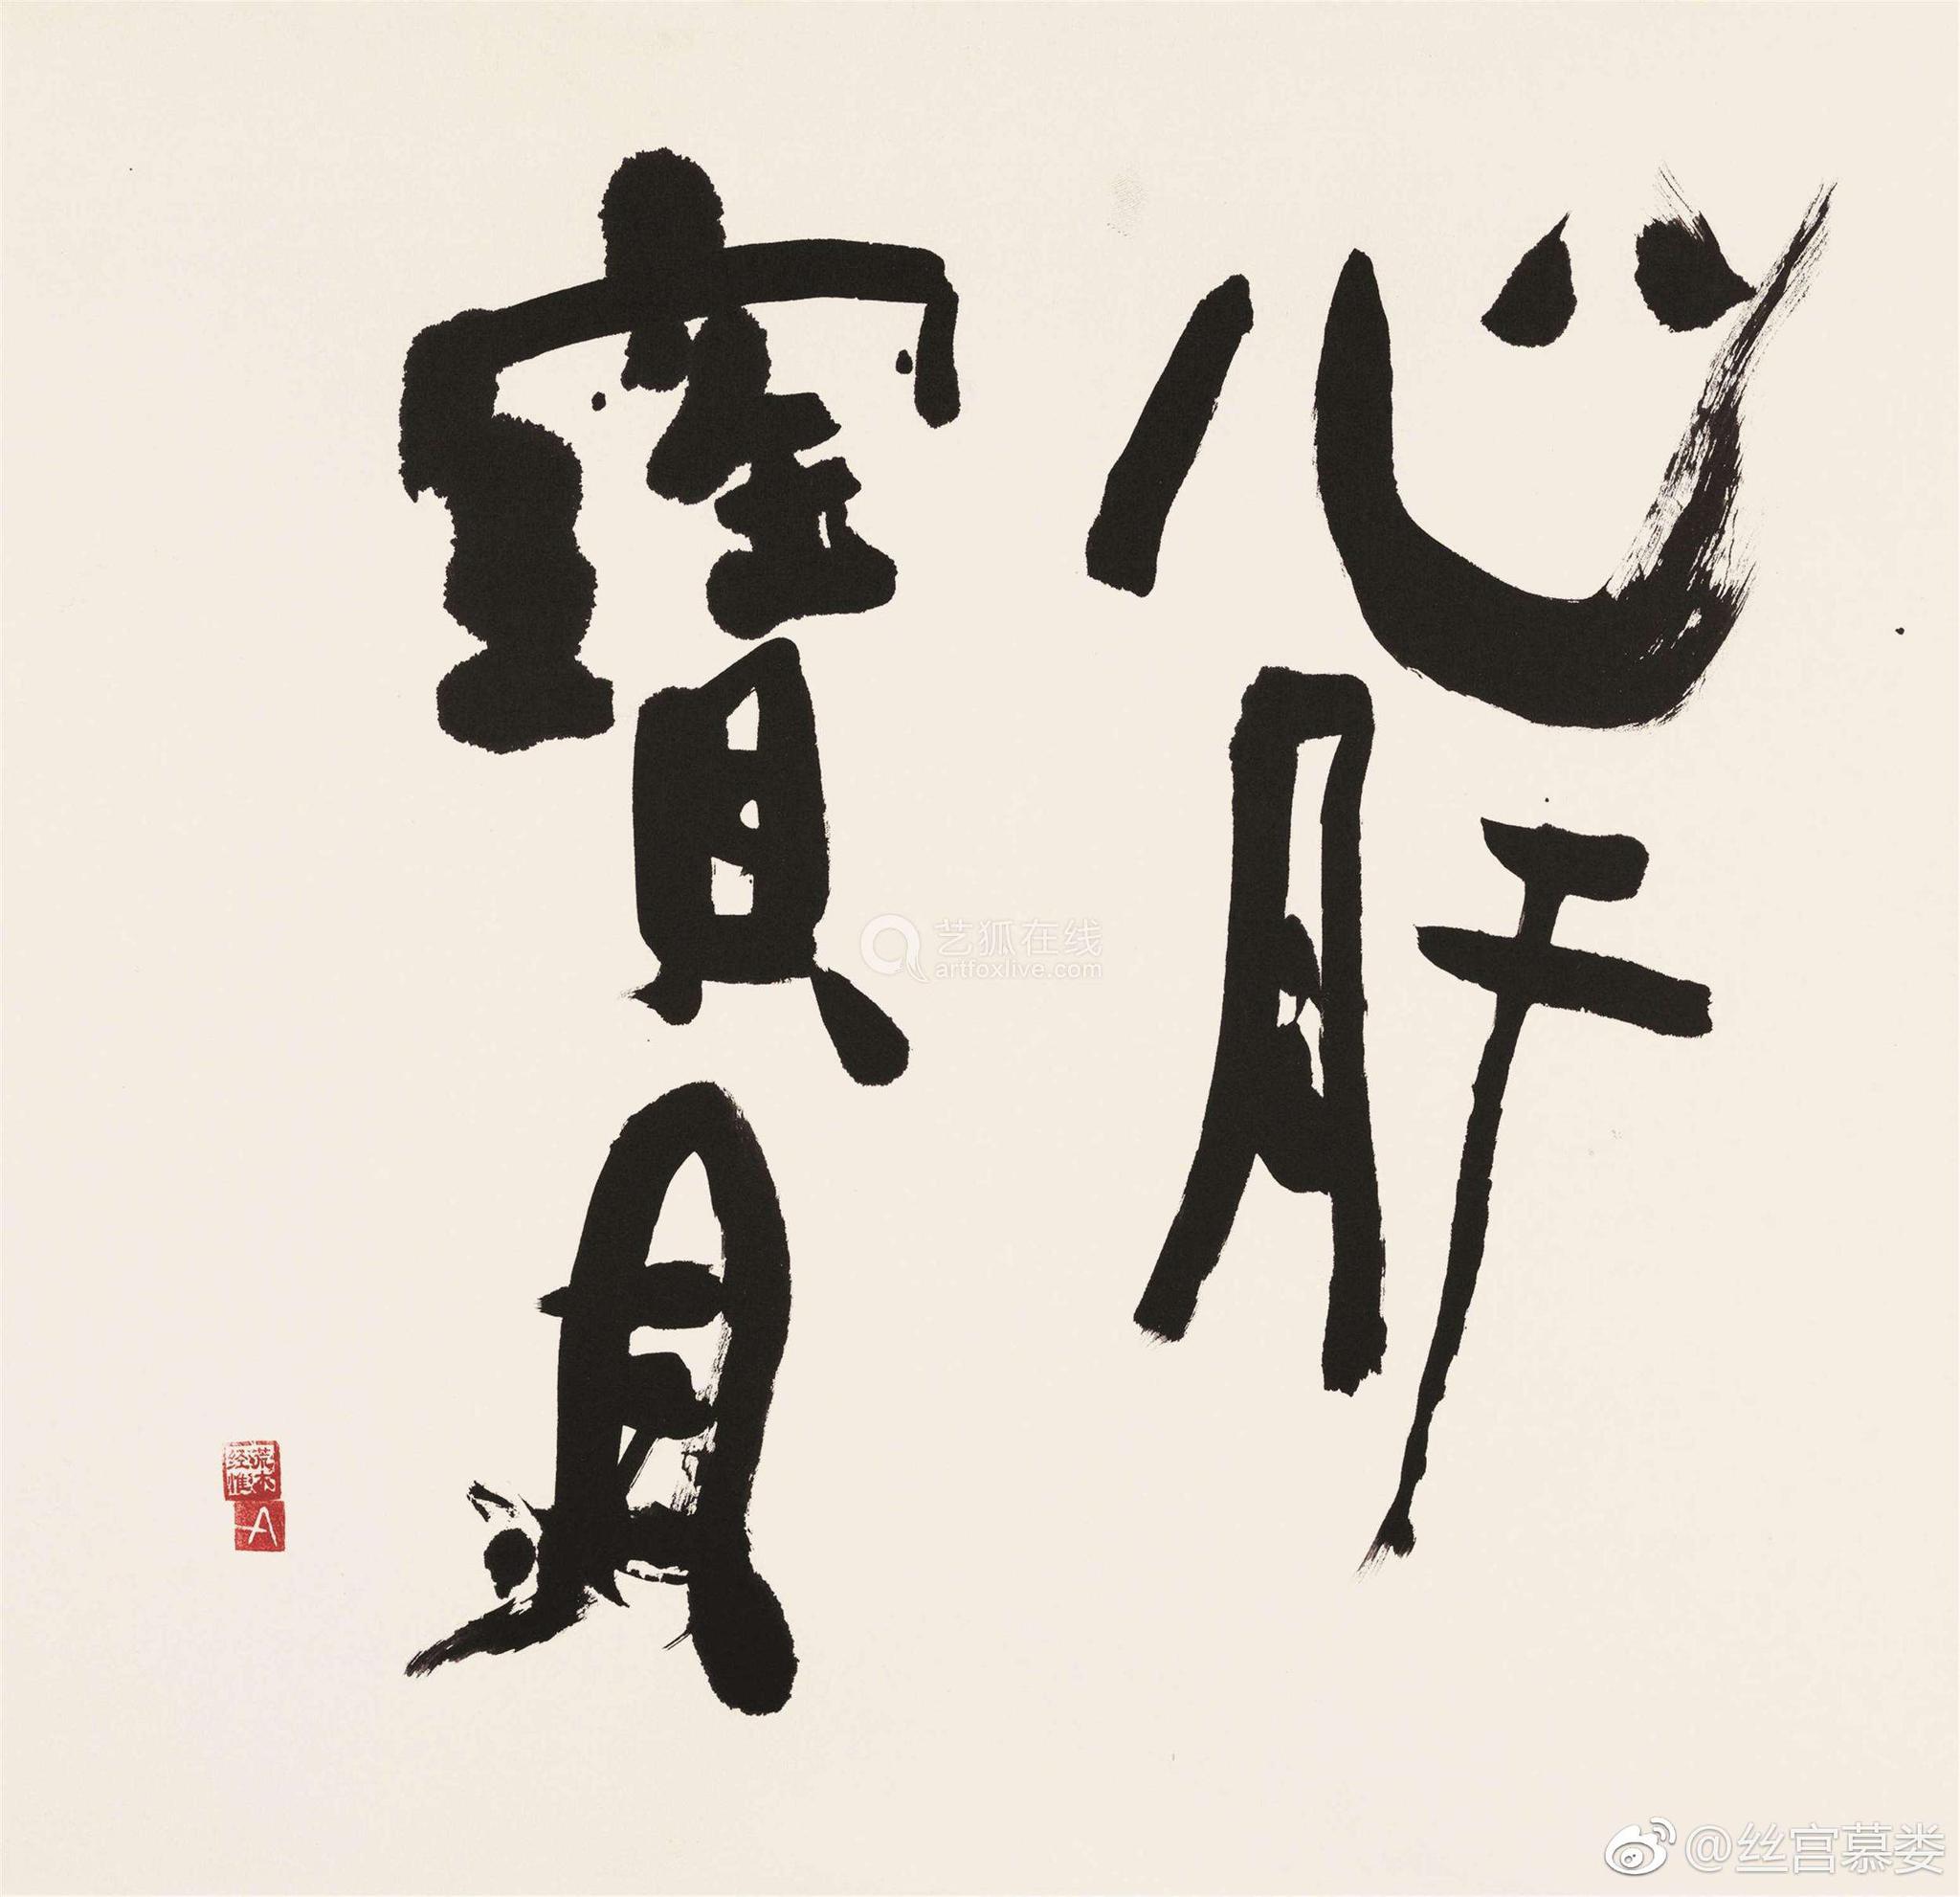 心肝
寶貝
荒木
经惟
A
艺狐在线
artfoxlive.com
@丝宫慕娄